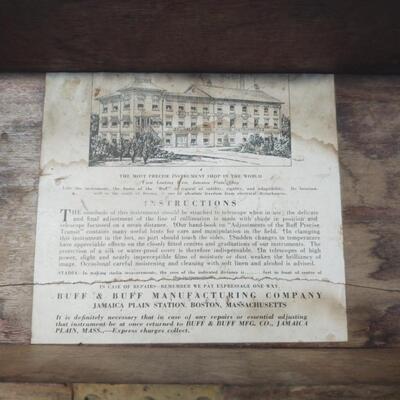 THE MOST PRECISE INSTRUMENT SHOP IN THE WORLD
View Looking West, Jamaica Plain
Like the instrument, the home of the "Buff" is typical of solidity, rigidity, and adaptability. Its location
absolute freedom from electrical disturbances.
INSTRUCTIONS
THE sunshade of this instrument should be attached to telescope when in use; the delicate
and final adjustment of the line of collimation is made with shade in position and
telescope focussed on a mean distance. Our hand-book on "Adjustments of the Buff Precise
Transit" contains many useful hints for care and manipulation in the field. In changing
this instrument in the box, no part should touch the sides. Sudden changes in temperature
have appreciable effects on the closely fitted centres and graduations of our instruments. The
protection of a silk or water-proof cover is therefore indispensable. In telescopes of high
power, slight and nearly imperceptible films of moisture or dust weaken the brilliancy of
image. Occasional careful moistening and cleaning with soft linen and alcohol is advised.
STADIA: In making stadia measurements, the zero of the indicated distance is feet in front of centre of
IN CASE OF REPAIRS—REMEMBER WE PAY EXPRESSAGE ONE WAY.
BUFF & BUFF MANUFACTURING COMPANY
JAMAICA PLAIN STATION, BOSTON, MASSACHUSETTS
It is definitely necessary that in case of any repairs or essential adjusting
that instrument be at once returned to BUFF & BUFF MFG. CO., JAMAICA
PLAIN, MASS.,—Express charges collect.